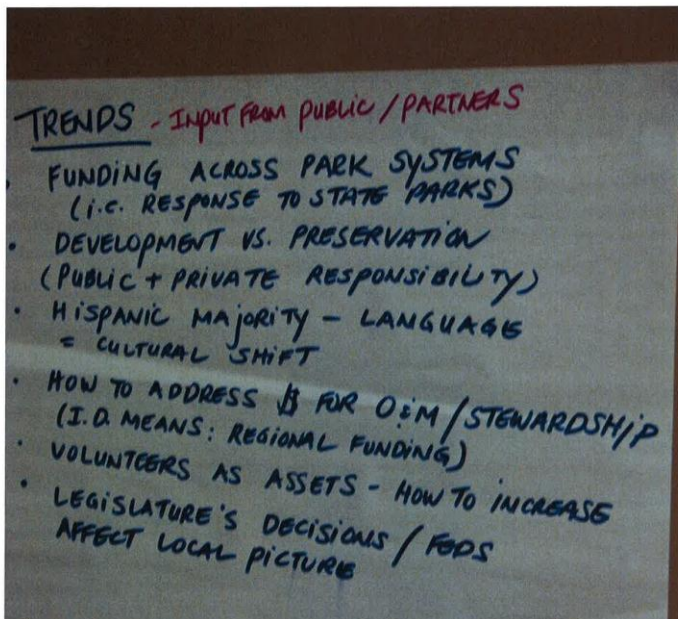 TRENDS - INPUT FROM PUBLIC / PARTNERS
• FUNDING ACROSS PARK SYSTEMS
(i.e. RESPONSE TO STATE PARKS)
• DEVELOPMENT VS. PRESERVATION
(PUBLIC + PRIVATE RESPONSIBILITY)
• HISPANIC MAJORITY - LANGUAGE
= CULTURAL SHIFT
• HOW TO ADDRESS $ FOR O&M / STEWARDSHIP
(I.D. MEANS: REGIONAL FUNDING)
• VOLUNTEERS AS ASSETS - HOW TO INCREASE
• LEGISLATURE'S DECISIONS / FEDS
AFFECT LOCAL PICTURE